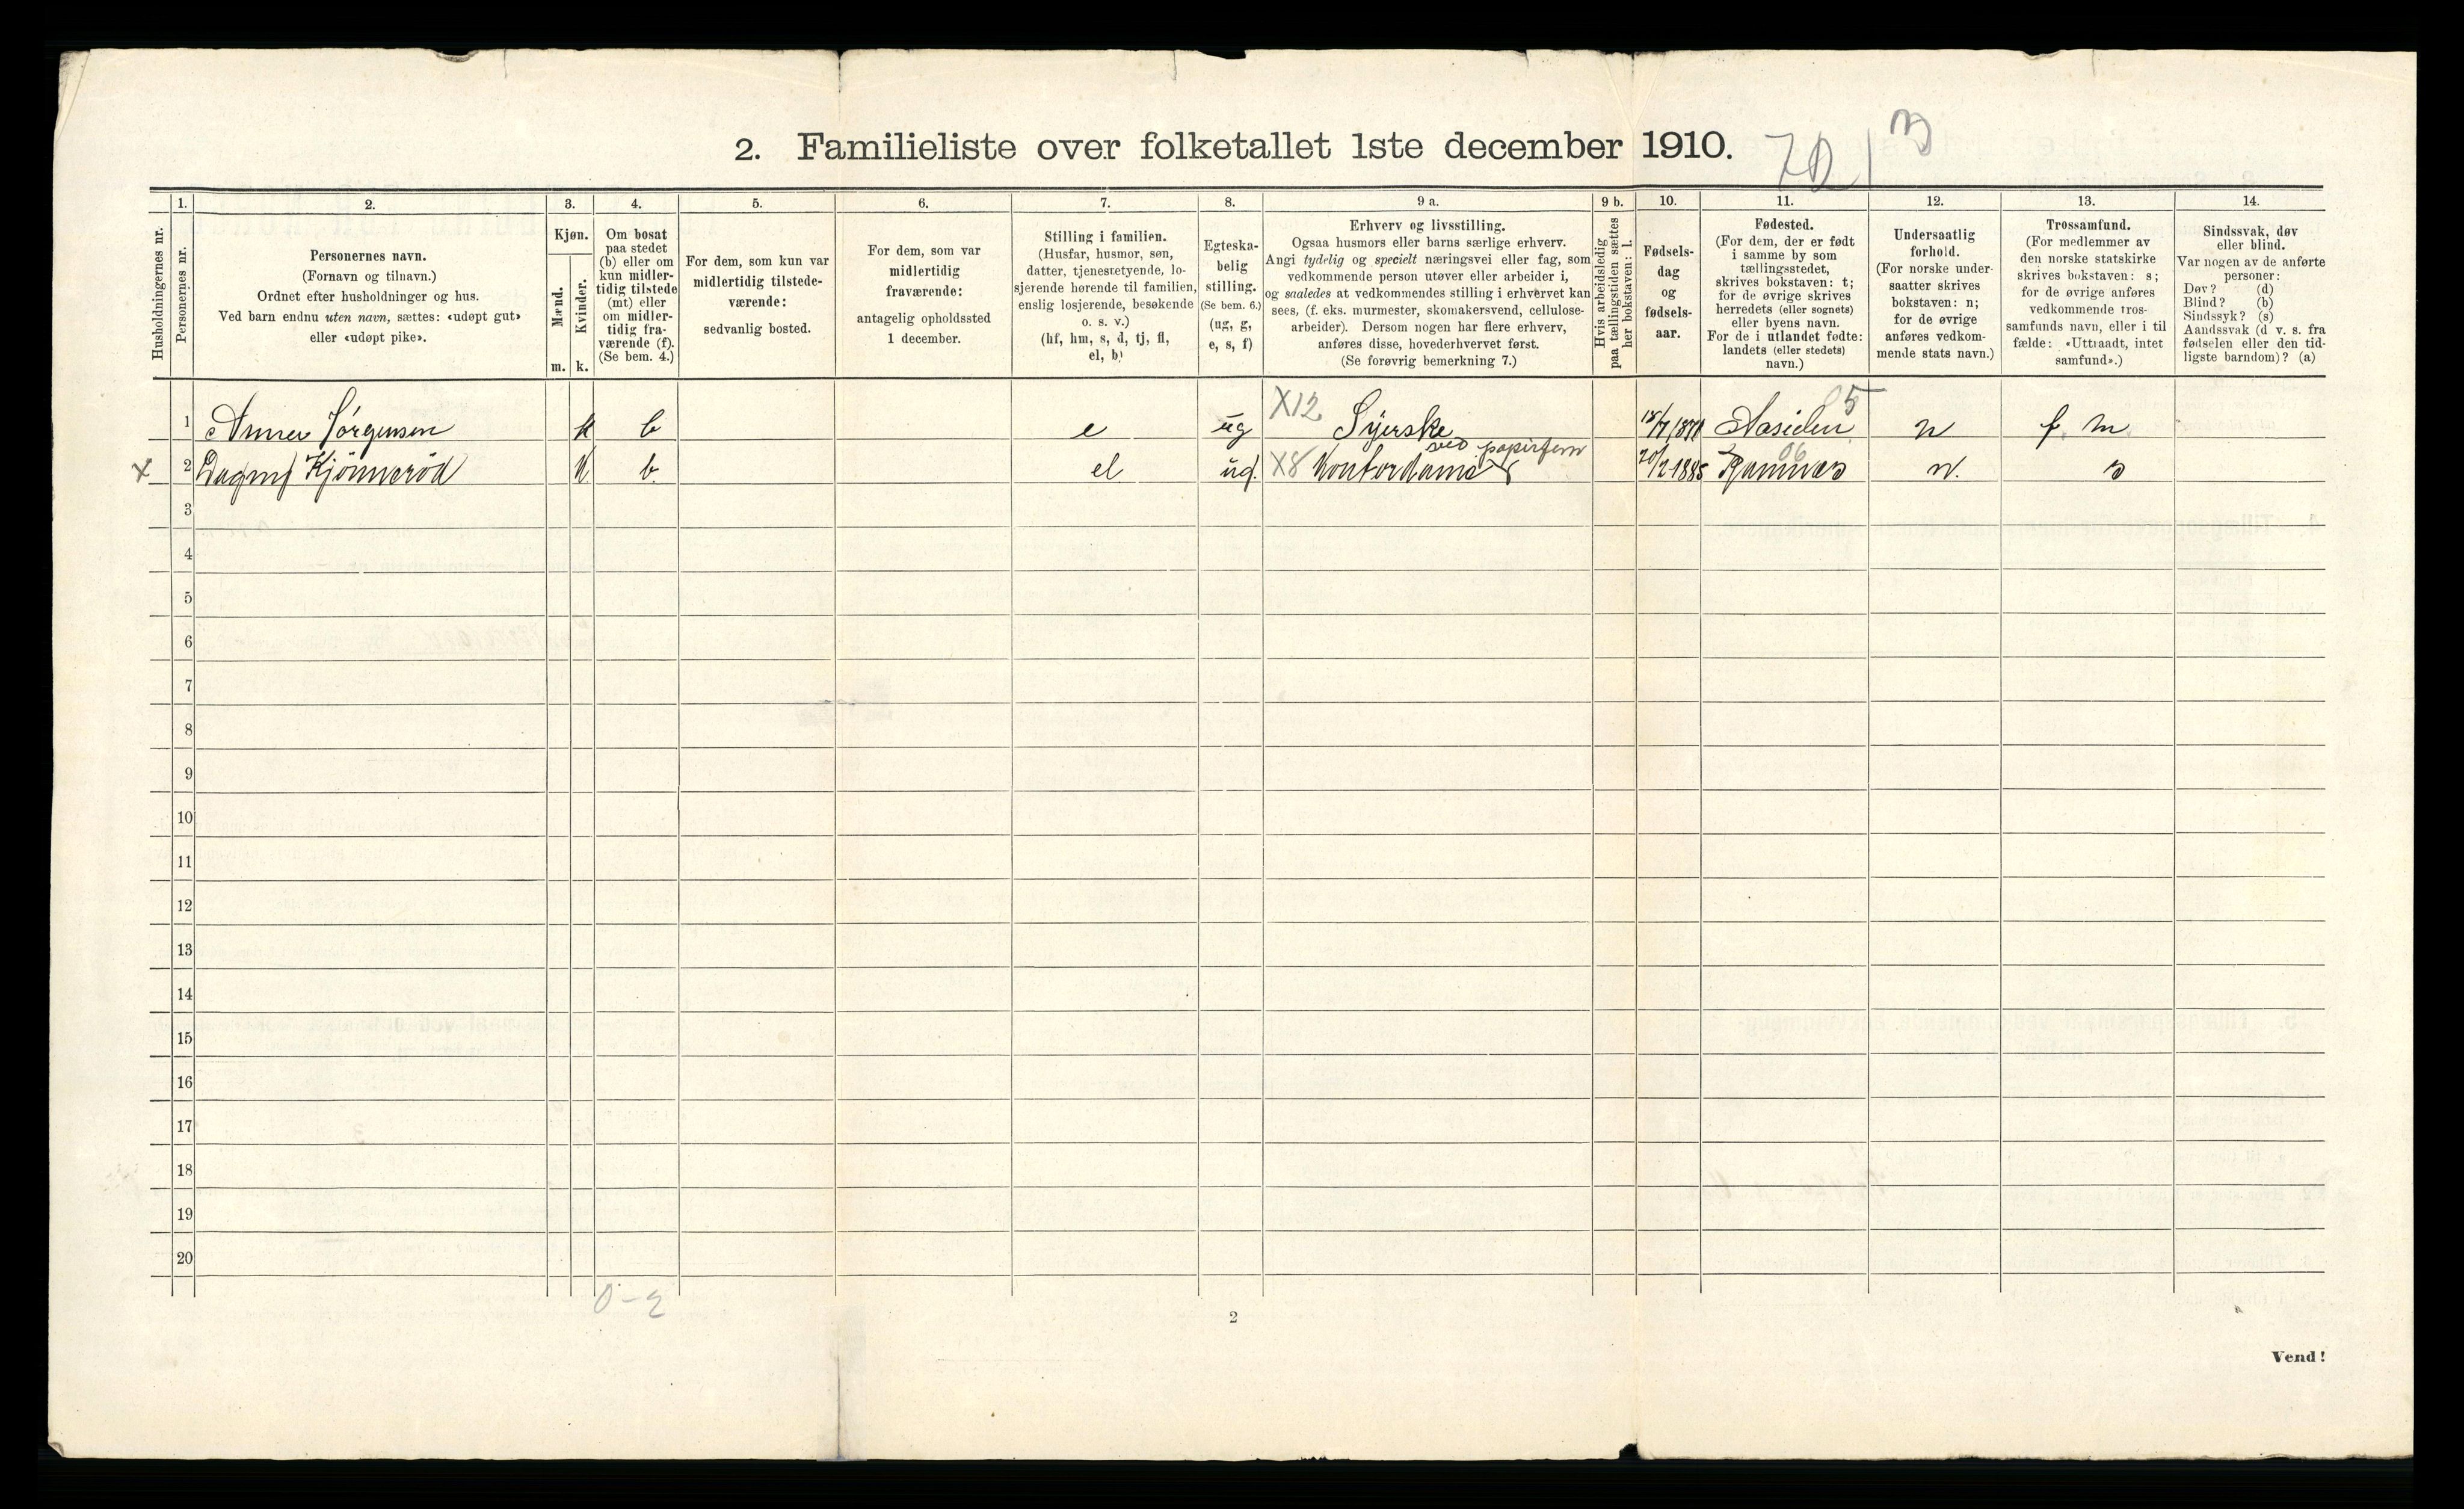 2. Familieliste over folketallet 1ste december 1910.
Husholdningernes nr.
1.
Personernes nr.
2.
Personernes navn.
(Fornavn og tilnavn.)
Ordnet efter husholdninger og hus.
Ved barn endnu uten navn, sættes: «udøpt gut»
eller «udøpt pike».
3.
Kjøn.
Mænd.
Kvinder.
m. k.
4.
Om bosat
paa stedet
(b) eller om
kun midler-
tidig tilstede
(mt) eller
om midler-
tidig fra-
værende (f).
(Se bem. 4.)
5.
For dem, som kun var
midlertidig tilstede-
værende:
sedvanlig bosted.
6.
For dem, som var
midlertidig
fraværende:
antagelig opholdssted
1 december.
7.
Stilling i familien.
(Husfar, husmor, søn,
datter, tjenestetyende, lo-
sjerende hørende til familien,
enslig losjerende, besøkende
o. s. v.)
(hf, hm, s, d, tj, fl,
el, b)
8.
Egteska-
belig
stilling.
(Se bem. 6.)
(ug, g,
e, s, f)
9 a.
Erhverv og livsstilling.
Ogsaa husmors eller barns særlige erhverv.
Angi tydelig og specielt næringsvei eller fag, som
vedkommende person utøver eller arbeider i,
og saaledes at vedkommendes stilling i erhvervet kan
sees, (f. eks. murmester, skomakersvend, cellulose-
arbeider). Dersom nogen har flere erhverv,
anføres disse, hovederhvervet først.
(Se forøvrig bemerkning 7.)
9 b.
Hvis arbeidsledig
paa tællingstiden sættes
her bokstaven: l.
10.
Fødsels-
dag
og
fødsels-
aar.
11.
Fødested.
(For dem, der er født
i samme by som
tællingsstedet,
skrives bokstaven: t;
for de øvrige skrives
herredets (eller sognets)
eller byens navn.
For de i utlandet fødte:
landets (eller stedets)
navn.)
12.
Undersaatlig
forhold.
(For norske under-
saatter skrives
bokstaven: n;
for de øvrige
anføres vedkom-
mende stats navn.)
13.
Trossamfund.
(For medlemmer av
den norske statskirke
skrives bokstaven: s;
for de øvrige anføres
vedkommende tros-
samfunds navn, eller i til
fælde: «Uttraadt, intet
samfund».)
14.
Sindssvak, døv
eller blind.
Var nogen av de anførte
personer:
Døv? (d)
Blind? (b)
Sindssyk? (s)
Aandssvak (d v. s. fra
fødselen eller den tid-
ligste barndom)? (a)
1 Anna Jørgensen k b e ug X12 Syerske Aasiden 05 n f. m
X 2 Dagny Kjönnerød k b el ug. X8 Kontordame ved papirfirm 20/2 1885 Ramnes 06 n. s
3
4
5
6
7
8
9
10
11
12
13
14
15
16
17
18
19
20
0-2
2
Vend!